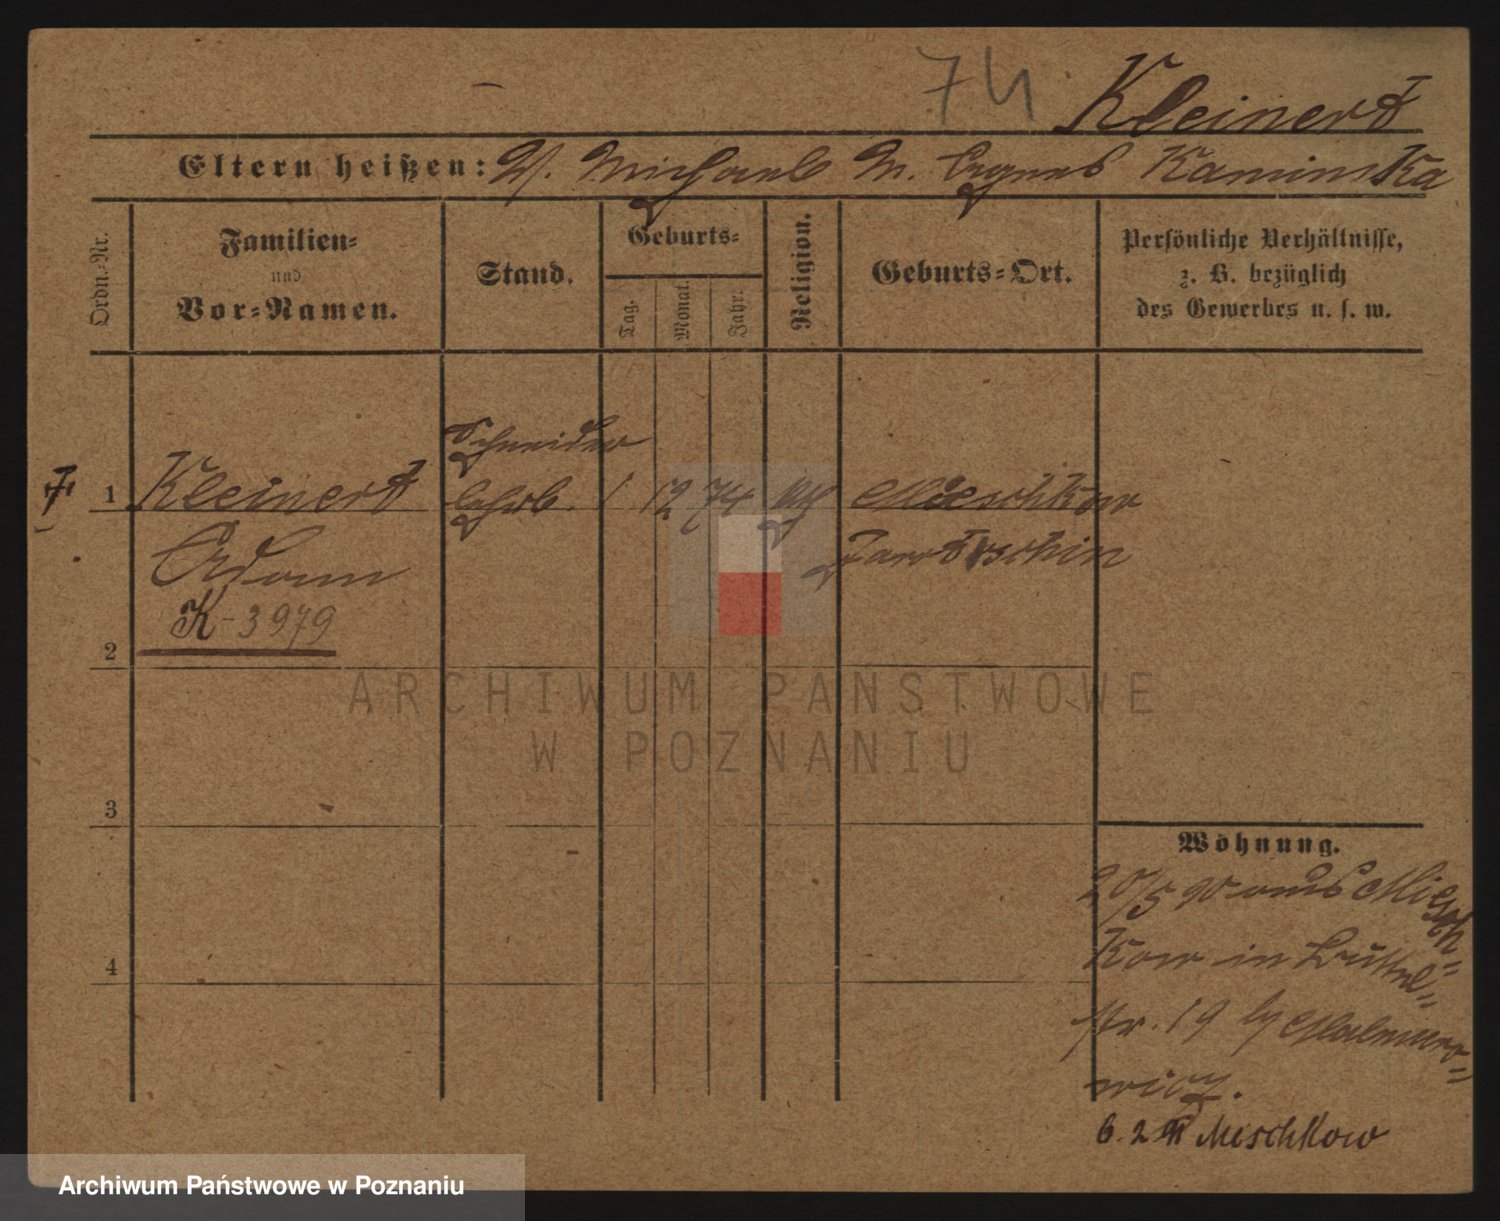 74 Kleinert
Eltern heißen: V. Michael M. Agnes Kaminska
Ordn.-Nr.
Familien-
und
Vor-Namen.
Stand.
Geburts-
Tag.
Monat.
Jahr.
Religion.
Geburts-Ort.
Persönliche Verhältnisse,
z. B. bezüglich
des Gewerbes u. s. w.
Schneider
1 Kleinert lehrl. 1 12 74 kth Mieschkow
Adam Jarotschin
K-3979
2
3
4
Wohnung.
20/5 90 aus Miesch-
kow in Büttel-
str. 19 b
wicz.
6.2 91 Meschkow
ARCHIWUM PAŃSTWOWE
W POZNANIU
Archiwum Państwowe w Poznaniu